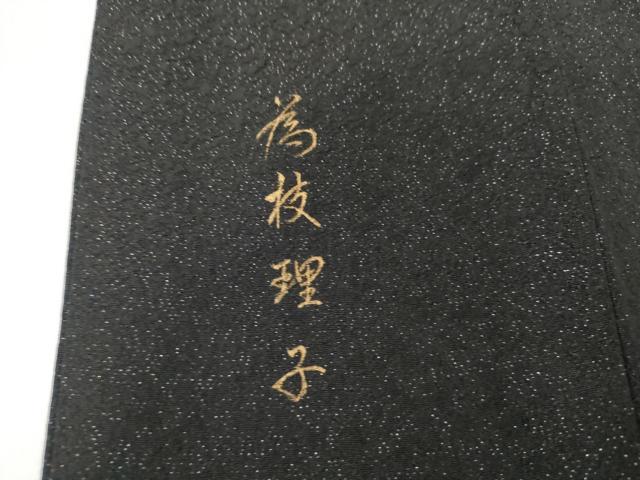 為枝理子